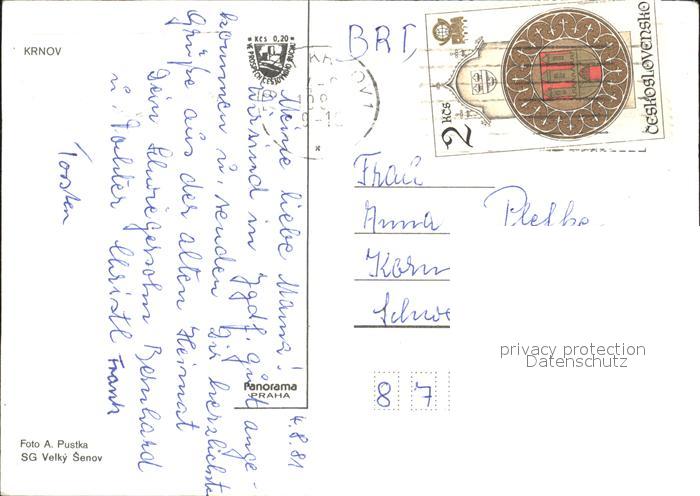 KRNOV
Kčs 0,20
KRNOV 1
BRD
2 Kčs
ČESKOSLOVENSKO
4.8.81
Meine liebe Mama!
Wir sind in Jgdf. gut ange-
kommen u. senden Dir herzlichste
Grüße aus der alten Heimat
Dein Schwiegersohn Bernhard
u. Tochter Christl Frank
Torsten
Frau
Anna Pletka
Korn
Schw
87
privacy protection
Datenschutz
Panorama
PRAHA
Foto A. Pustka
SG Velký Šenov